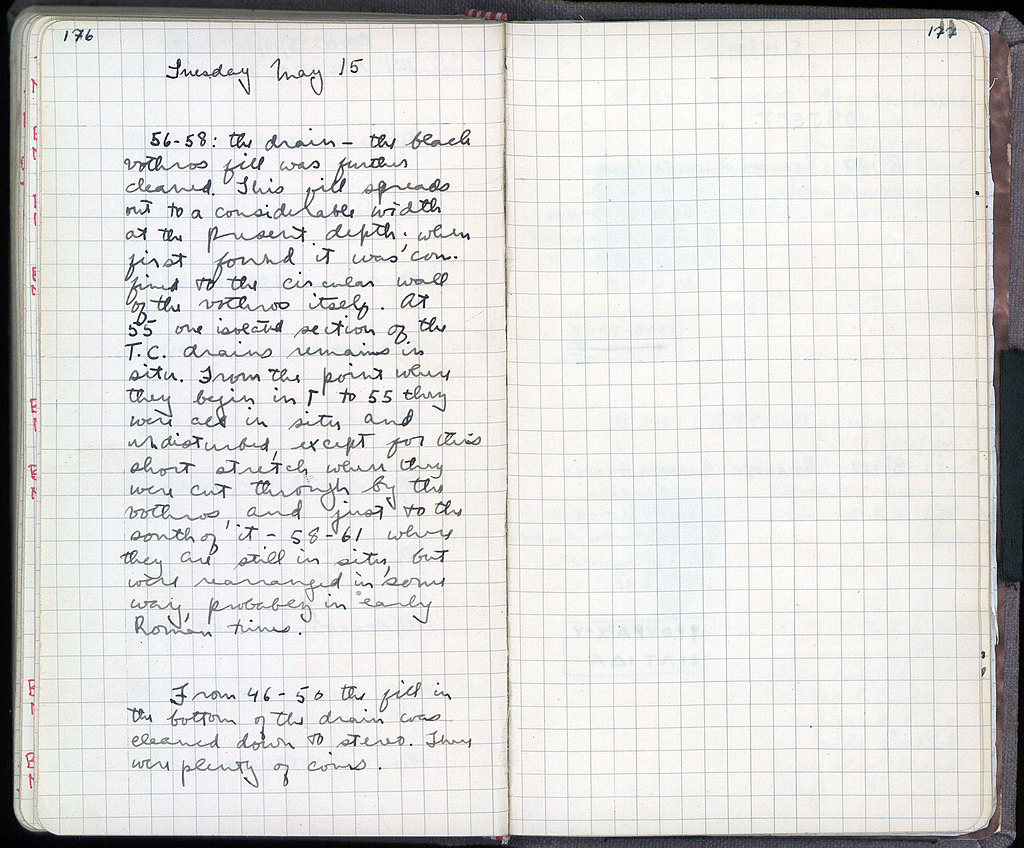 176
Tuesday May 15
56-58: the drain – the black
bothros fill was further
cleaned. This fill spreads
out to a considerable width
at the present depth; when
first found it was con-
fined to the circular wall
of the bothros itself. At
55 one isolated section of the
T.C. drains remains in
situ. From the point where
they begin in Γ to 55 they
were all in situ and
undisturbed, except for this
short stretch where they
were cut through by the
bothros, and just to the
south of it – 58-61 where
they are still in situ, but
were rearranged in some
way, probably in early
Roman times.
From 46-50 the fill in
the bottom of the drain was
cleaned down to stereo. There
were plenty of coins.
177